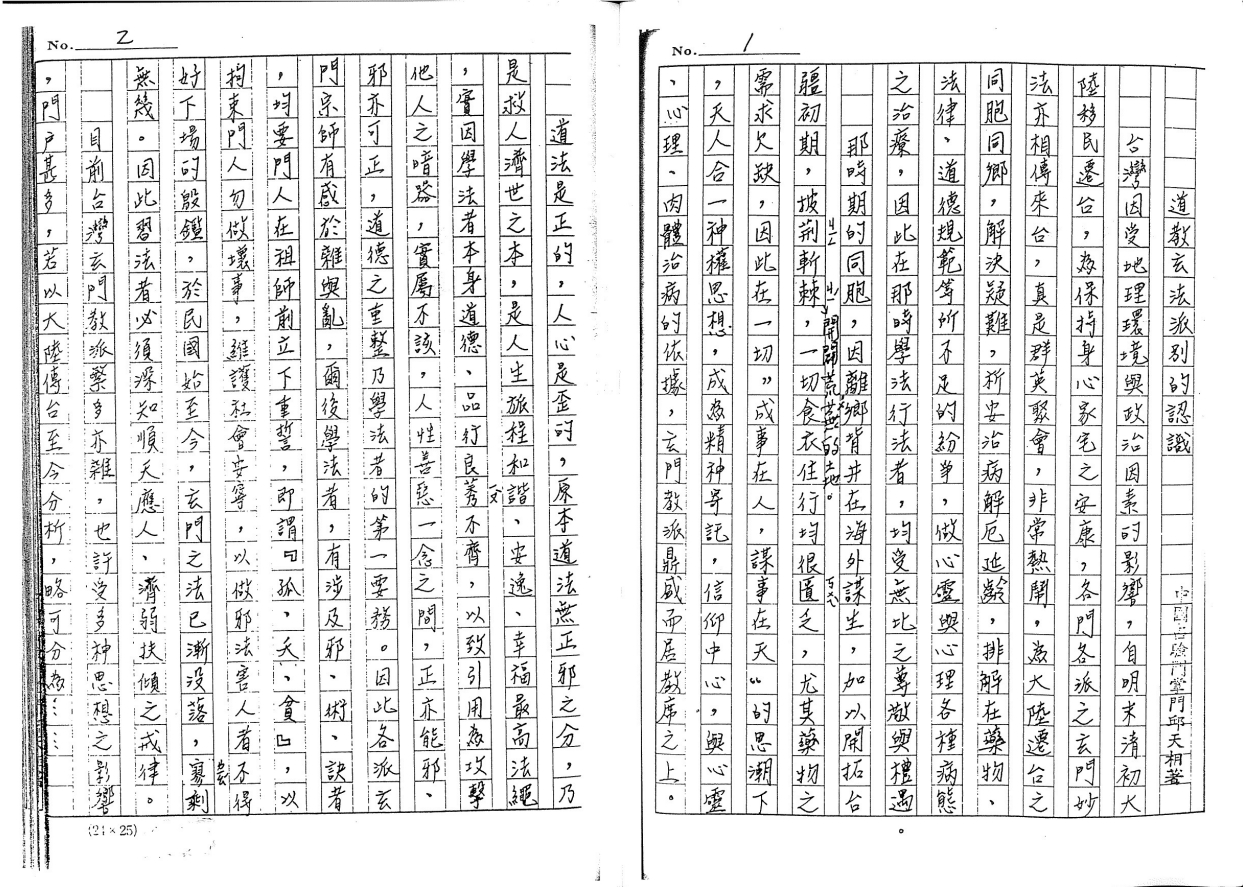 No. 1
道教玄法派別的認識
中國古驗門掌門邱天相著
台灣因受地理環境與政治因素的影響,自明末清初大
陸移民遷台,為保持身心家宅之安康,各門各派之玄門妙
法亦相傳來台,真是群英聚會,非常熱鬧,為大陸遷台之
同胞同鄉,解決疑難,祈安治病解厄延齡,排解在藥物、
法律、道德規範等所不足的紛爭,做心靈與心理各種病態
之治療,因此在那時學法行法者,均受無比之尊敬與禮遇。
那時期的同胞,因離鄉背井在海外謀生,加以開拓台
疆初期,披荆斬棘,開闢荒蕪的土地。一切食衣住行均很匱乏,尤其藥物之
需求欠缺,因此在一切〃成事在人,謀事在天〃的思潮下
,天人合一神權思想,成為精神寄託,信仰中心,與心靈
、心理、肉體治病的依據,玄門教派鼎盛而居教席之上。
No. 2
道法是正的,人心是歪的,原本道法無正邪之分,乃
是救人濟世之本,是人生旅程和諧、安逸、幸福最高法繩
,實因學法者本身道德、品行良莠不齊,以致引用為攻擊
他人之暗器,實屬不該,人性善惡一念之間,正亦能邪、
邪亦可正,道德之重整乃學法者的第一要務。因此各派玄
門宗師有感於雜與亂,爾後學法者,有涉及邪、術、訣者
,均要門人在祖師前立下重誓,即謂『孤、夭、貧』,以
拘束門人勿做壞事,維護社會安寧,以做邪法害人者不得
好下場的殷鑑,於民國始至今,玄門之法已漸沒落,寥剩
無幾。因此習法者必須深知順天應人、濟弱扶傾之戒律。
目前台灣玄門教派繁多亦雜,也許受多神思想之影響
,門戶甚多,若以大陸傳台至今分析,略可分為……
(24×25)